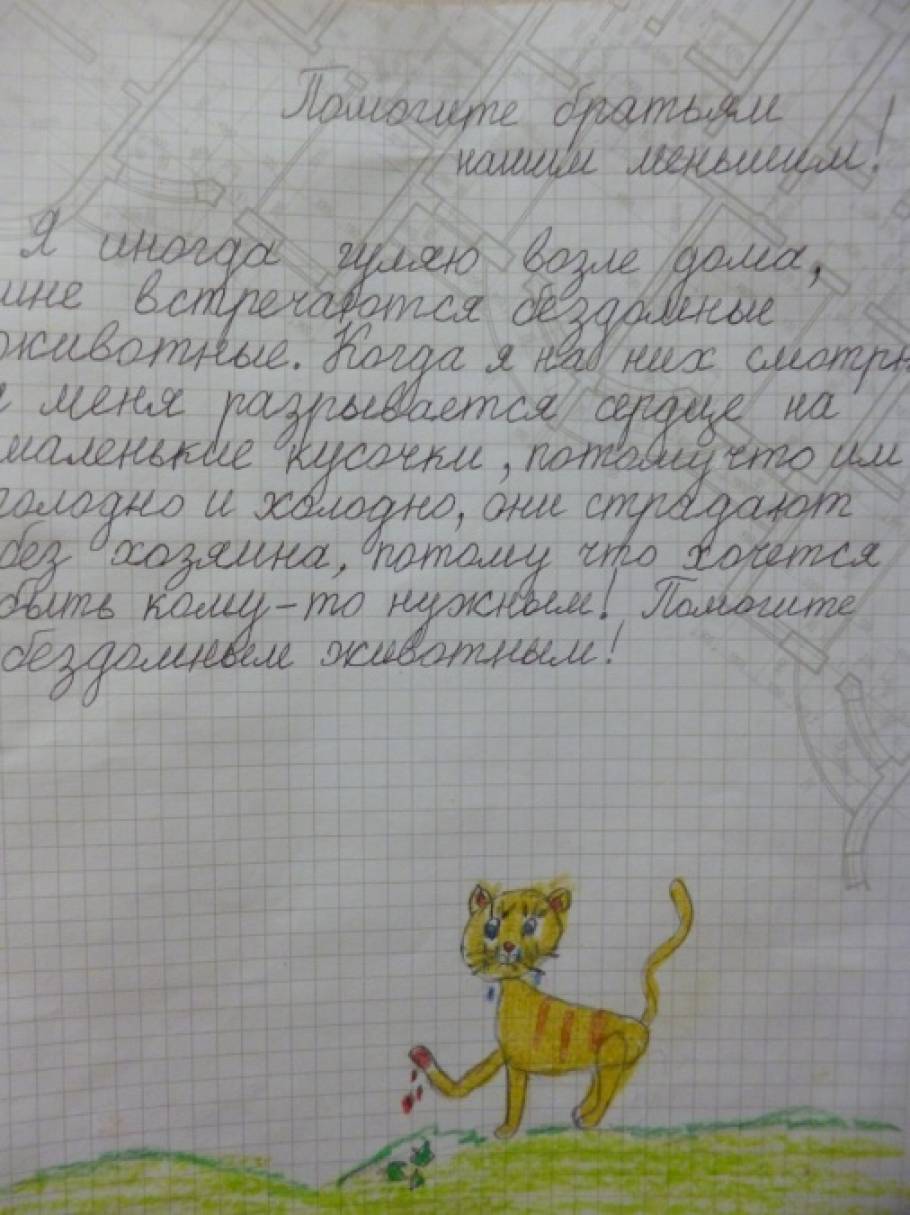 Помогите братьям
нашим меньшим!
Я иногда гуляю возле дома,
мне встречаются бездомные
животные. Когда я на них смотрю
меня разрывается сердце на
маленькие кусочки, потому что им
голодно и холодно, они страдают
без хозяина, потому что хочется
быть кому-то нужным! Помогите
бездомным животным!